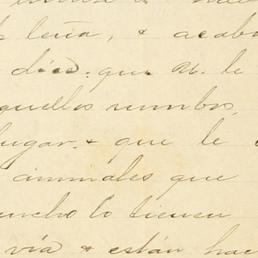 leña, & acab
dice: que U. le
aquellos rumbos,
lugar. & que le
animales que
mucho lo tienen
vía & están hac